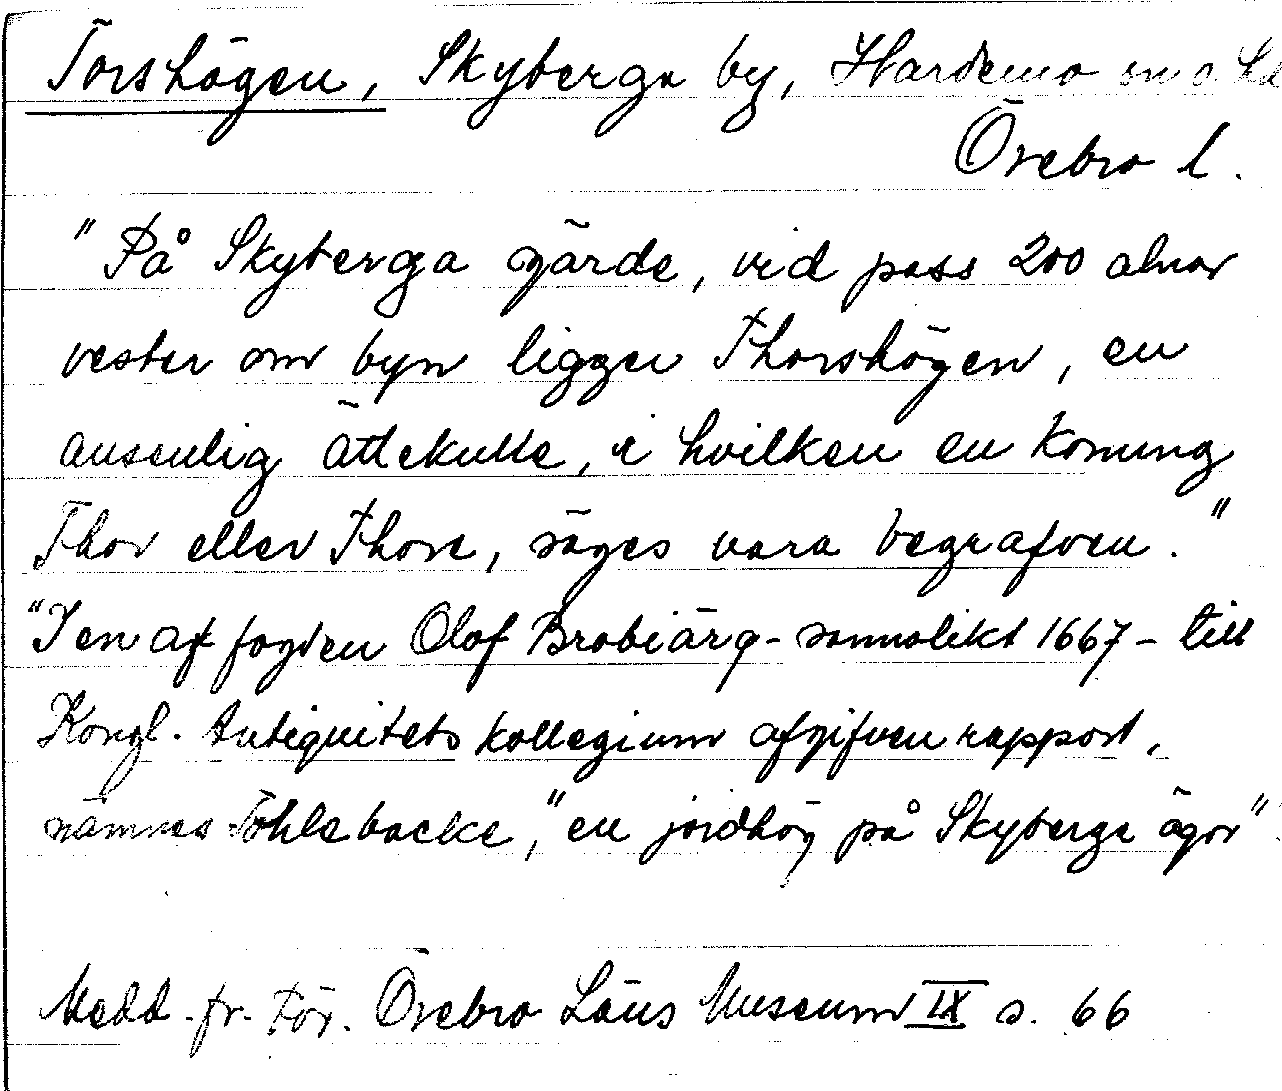 Torshögen, Skyberga by, Hardemo sn o hd
Örebro l.
"På Skyberga gärde, vid pass 200 alnar
vester om byn ligger Thorshögen, en
ansenlig ättekulle, i hvilken en konung
Thor eller Thore, säges vara begrafven."
"I en af fogden Olof Brobiärg - sannolikt 1667 - till
Kongl. Antiquitets kollegium afgifven rapport,
nämnes Töhlebacke, "en jordhög på Skyberga ägor".
Medd. fr. För. Örebro Läns Museum IX s. 66